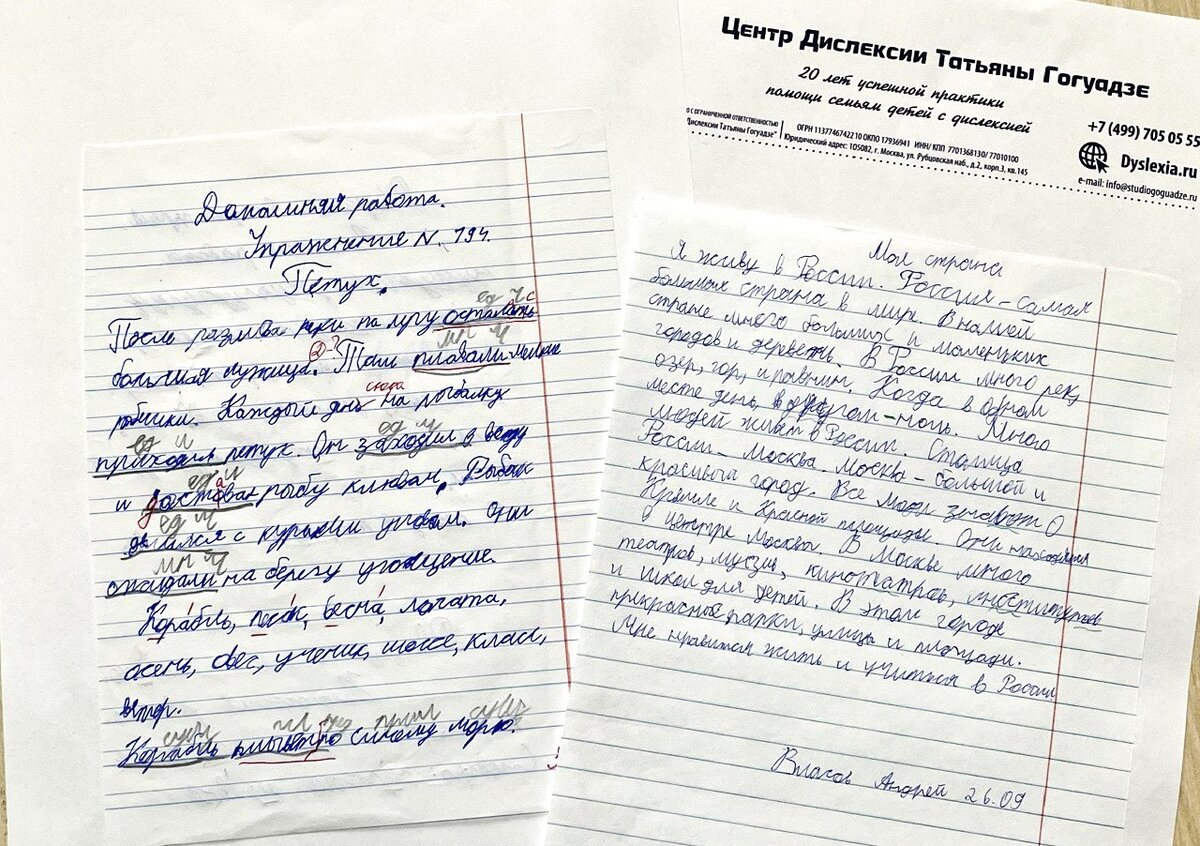 Центр Дислексии Татьяны Гогуадзе
20 лет успешной практики
помощи семьям детей с дислексией
О С ОГРАНИЧЕННОЙ ОТВЕТСТВЕННОСТЬЮ
Дислексии Татьяны Гогуадзе"
ОГРН 1137746742210 ОКПО 17936941 ИНН/ КПП 7701368130/ 77010100
Юридический адрес: 105082, г. Москва, ул. Рубцовская наб., д.2, корп.3, кв.145
+7 (499) 705 05 55
Dyslexia.ru
e-mail: info@studiogoguadze.ru
Домашняя работа.
Упражнение N. 194.
Петух.
ед ч с
После разлива реки на лугу осталась
мн ч
большая лужица. 2-? Там плавали мелкие
сюда
рыбёшки. Каждый день на рыбалку
ед ч ед ч
приходил петух. Он заходил в воду
ед ч а
и доставал рыбу клювом. Рыбак
ед ч
делился с курами уловом. Они
мн ч
ожидали на берегу угощение.
Корабль, песок, весна, лопата,
осень, овёс, ученик, шоссе, класс,
ветер.
сущ гл пред прил сущ
Корабль плывёт по синему морю.
Моя страна
Я живу в России. Россия - самая
большая страна в мире. В нашей
стране много больших и маленьких
городов и деревень. В России много рек,
озер, гор, и равнин. Когда в одном
месте день, в другом - ночь. Много
людей живет в России. Столица
России - Москва. Москва - большой и
красивый город. Все люди знают о
Кремле и Красной площади. Они находятся
в центре Москвы. В Москве много
театров, музеев, кинотеатров, институтов
и школ для детей. В этом городе
прекрасные парки, улицы и площади.
Мне нравится жить и учиться в России
Власов Андрей 26.09